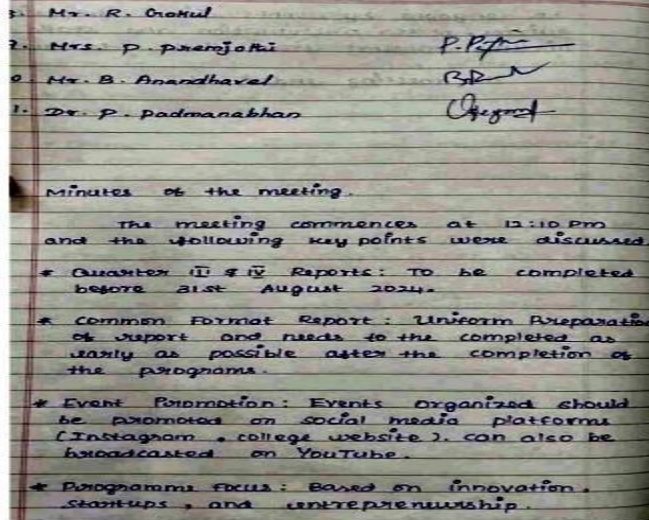 Mr. R. Gokul
Mrs. P. Premjothi
Mr. B. Anandhavel
1. Dr. P. Padmanabhan
Minutes of the meeting.
The meeting commences at 12:10 pm
and the following key points were discussed
* Quarter III & IV Reports: To be completed
before 31st August 2024.
* Common Format Report: Uniform Preparation
of report and needs to the completed as
early as possible after the completion of
the programs.
* Event Promotion: Events organized should
be promoted on social media platforms
(Instagram, college website). can also be
broadcasted on YouTube.
* Programme Focus: Based on innovation,
startups, and entrepreneurship.